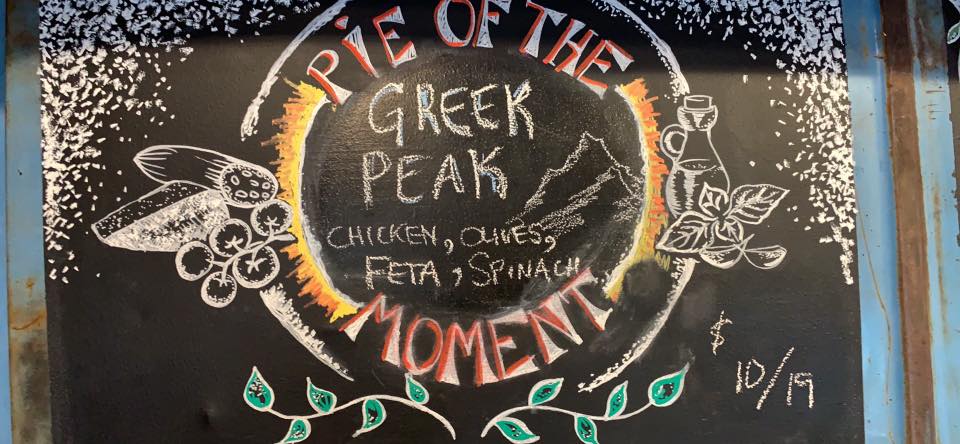 PIE OF THE
GREEK
PEAK
CHICKEN, OLIVES,
FETA, SPINACH
MOMENT
$
10/19